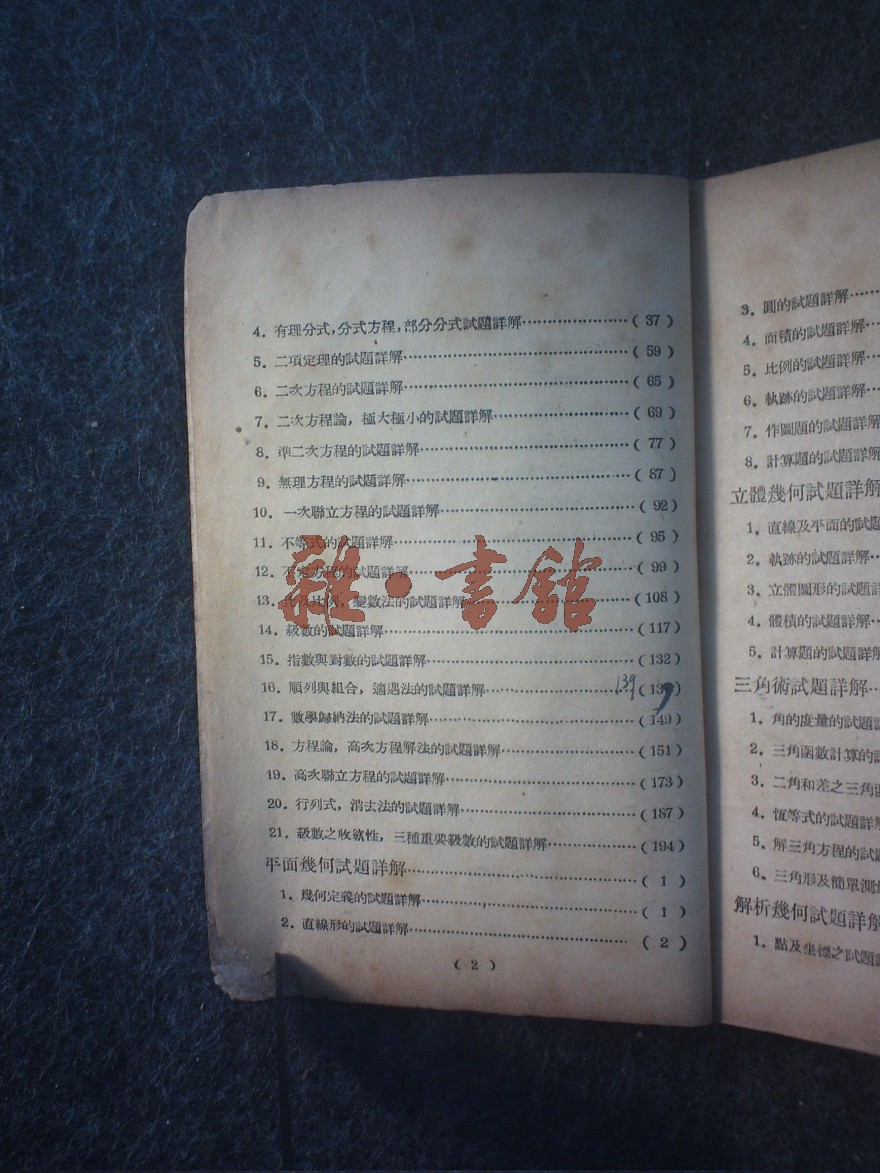 4. 有理分式,分式方程,部分分式試題詳解………………( 37 )
5. 二項定理的試題詳解………………( 59 )
6. 二次方程的試題詳解………………( 65 )
7. 二次方程論, 極大極小的試題詳解………………( 69 )
8. 準二次方程的試題詳解………………( 77 )
9. 無理方程的試題詳解………………( 87 )
10. 一次聯立方程的試題詳解………………( 92 )
11. 不等式的試題詳解………………( 95 )
12. 不定方程的試題詳解………………( 99 )
13. 比及比例, 變數法的試題詳解………………(108 )
14. 級數的試題詳解………………(117 )
15. 指數與對數的試題詳解………………(132 )
16. 順列與組合, 適遇法的試題詳解………………139 (139)
17. 數學歸納法的試題詳解………………(149)
18. 方程論, 高次方程解法的試題詳解………………(151 )
19. 高次聯立方程的試題詳解………………(173 )
20. 行列式, 消去法的試題詳解………………(187 )
21. 級數之收斂性, 三種重要級數的試題詳解………………(194 )
平面幾何試題詳解………………( 1 )
1. 幾何定義的試題詳解………………( 1 )
2. 直線形的試題詳解………………( 2 )
( 2 )
3. 圓的試題詳解……
4. 面積的試題詳解…
5. 比例的試題詳解…
6. 軌跡的試題詳解…
7. 作圖題的試題詳解
8. 計算題的試題詳解
立體幾何試題詳解
1. 直線及平面的試題
2. 軌跡的試題詳解…
3. 立體圖形的試題詳
4. 體積的試題詳解…
5. 計算題的試題詳解
三角術試題詳解…
1. 角的度量的試題詳
2. 三角函數計算的試
3. 二角和差之三角函
4. 恆等式的試題詳解
5. 解三角方程的試題
6. 三角形及簡單測量
解析幾何試題詳解
1. 點及坐標之試題詳
雜·書館